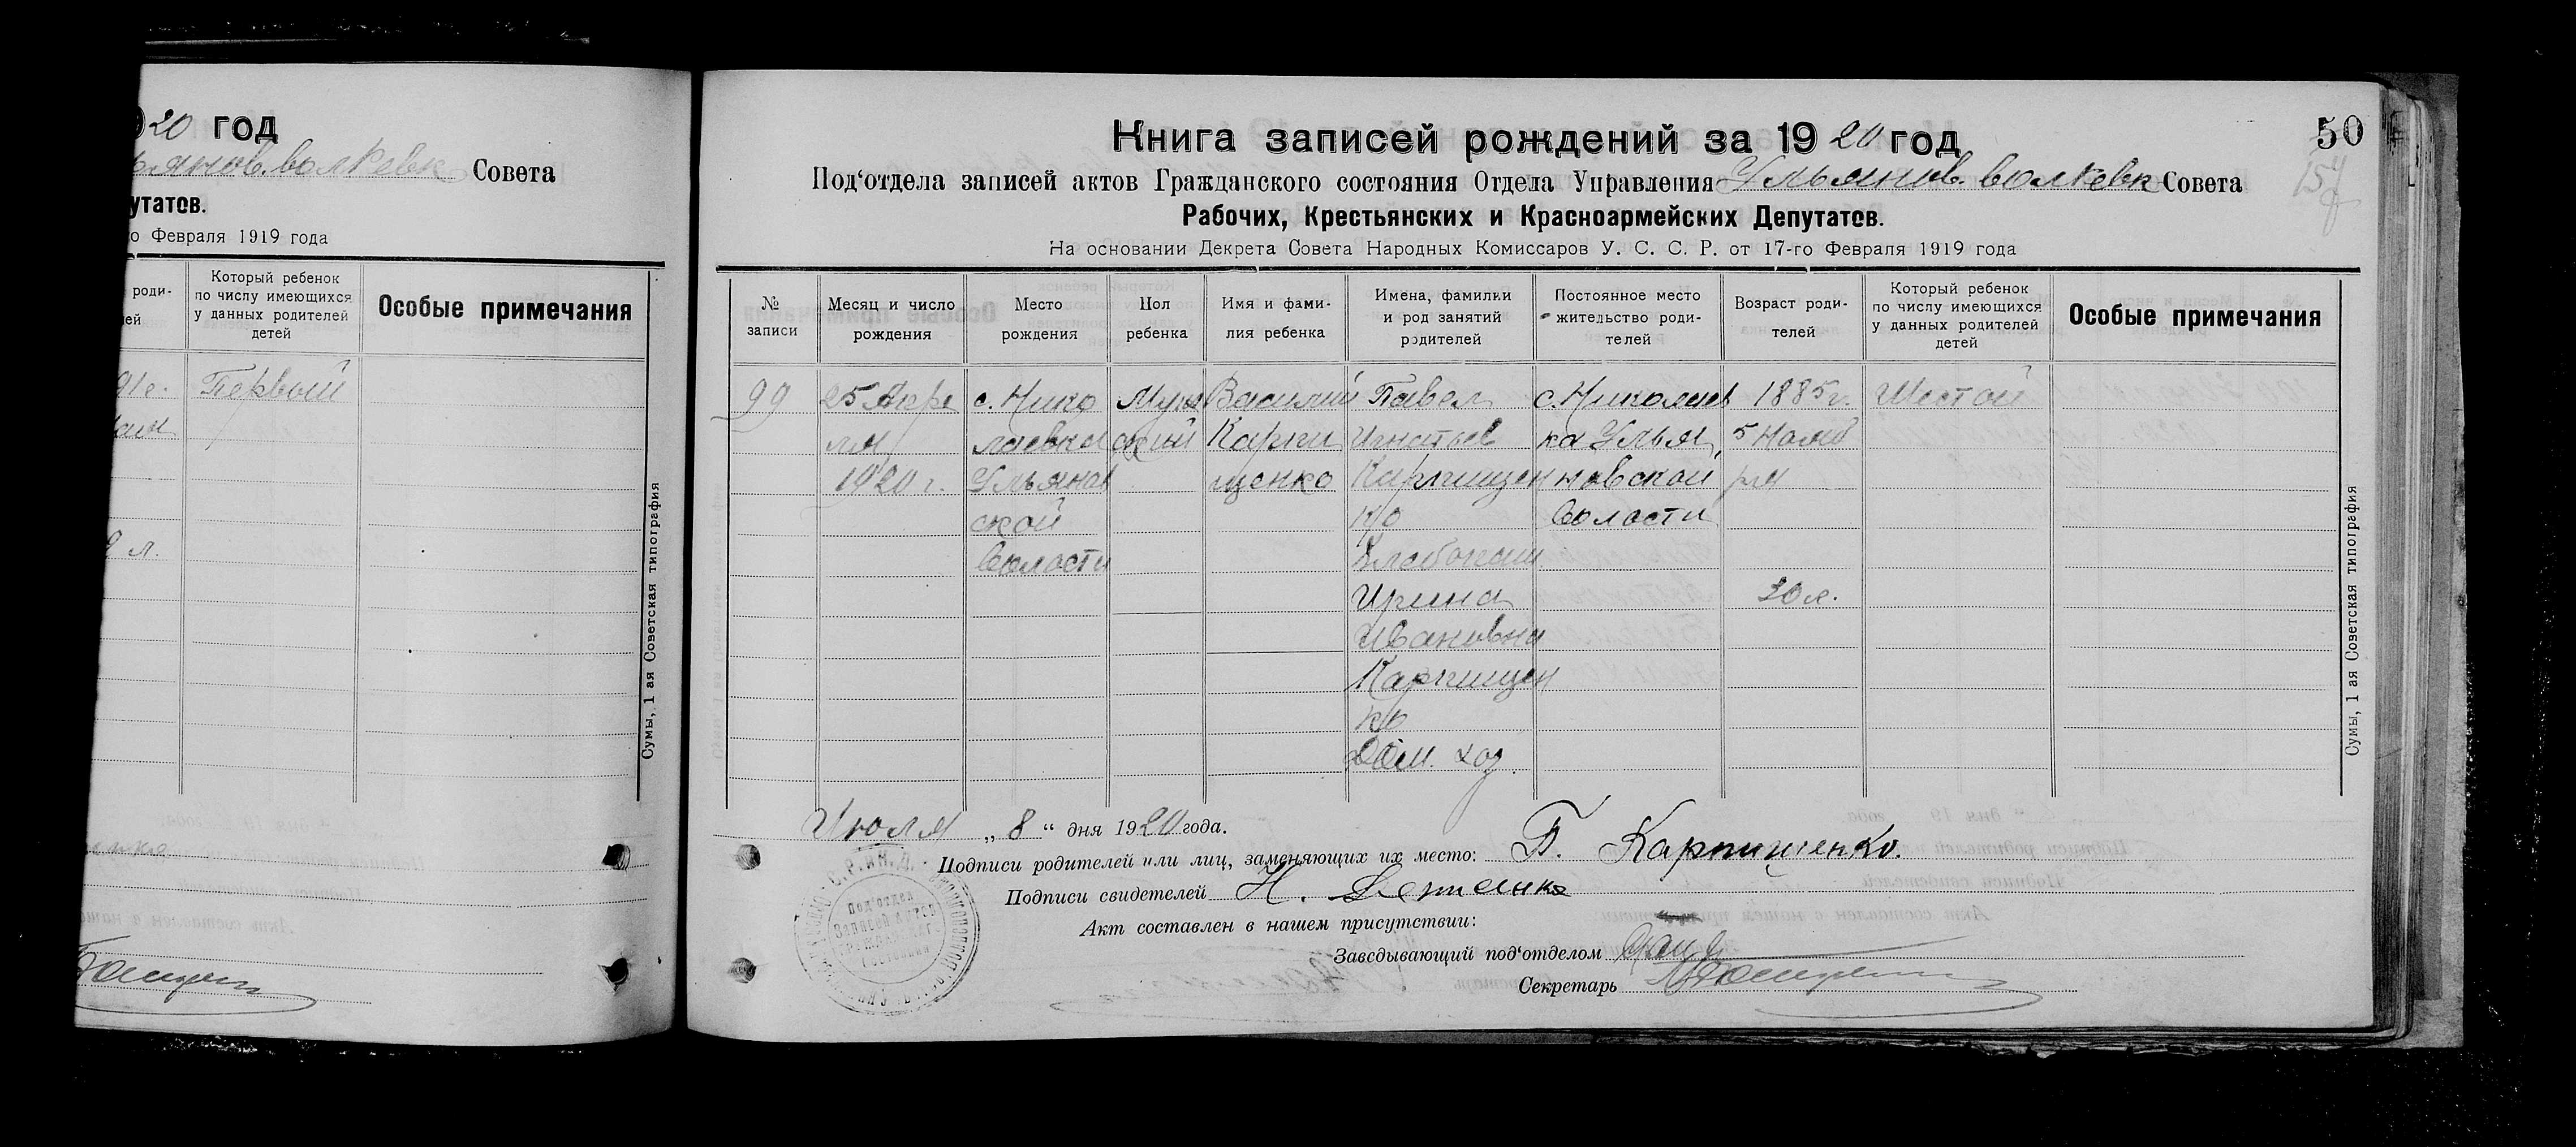 20 год
Совета
утатов.
о Февраля 1919 года
роди-
ей
Который ребенок
по числу имеющихся
у данных родителей
детей
Особые примечания
91г.
Первый
9 л.
Сумы, 1 ая Советская типография
50
Книга записей рождений за 1920 год
Под‘отдела записей актов Гражданского состояния Отдела Управления Ульянов. волревк Совета
Рабочих, Крестьянских и Красноармейских Депутатов.
На основании Декрета Совета Народных Комиссаров У. С. С. Р. от 17-го Февраля 1919 года
№
записи
Месяц и число
рождения
Место
рождения
Пол
ребенка
Имя и фами-
лия ребенка
Имена, фамилии
и род занятий
родителей
Постоянное место
жительство роди-
телей
Возраст роди-
телей
Который ребенок
по числу имеющихся
у данных родителей
детей
Особые примечания
99
25 Апре
ля
1920 г.
с. Нико
лаевка
Ульянов
ской
Волости
Муж
ской
Василий
Карпи
щенко
Павел
Игнатьев
Карпищен
ко
Хлебопаш.
Ирина
Ивановна
Карпищен
ко
Дом. хоз.
с. Николаев
ка Улья
новской
Волости
1885г.
5 Нояб
ря
30 л.
Шестой
Сумы, 1 ая Советская типография
Июля „8“ дня 1920 года.
Подписи родителей или лиц, заменяющих их место: П. Карпищенко.
Подписи свидетелей Н.
Акт составлен в нашем присутствии:
Заведывающий под‘отделом
Секретарь
Под‘отдел
Записей актов